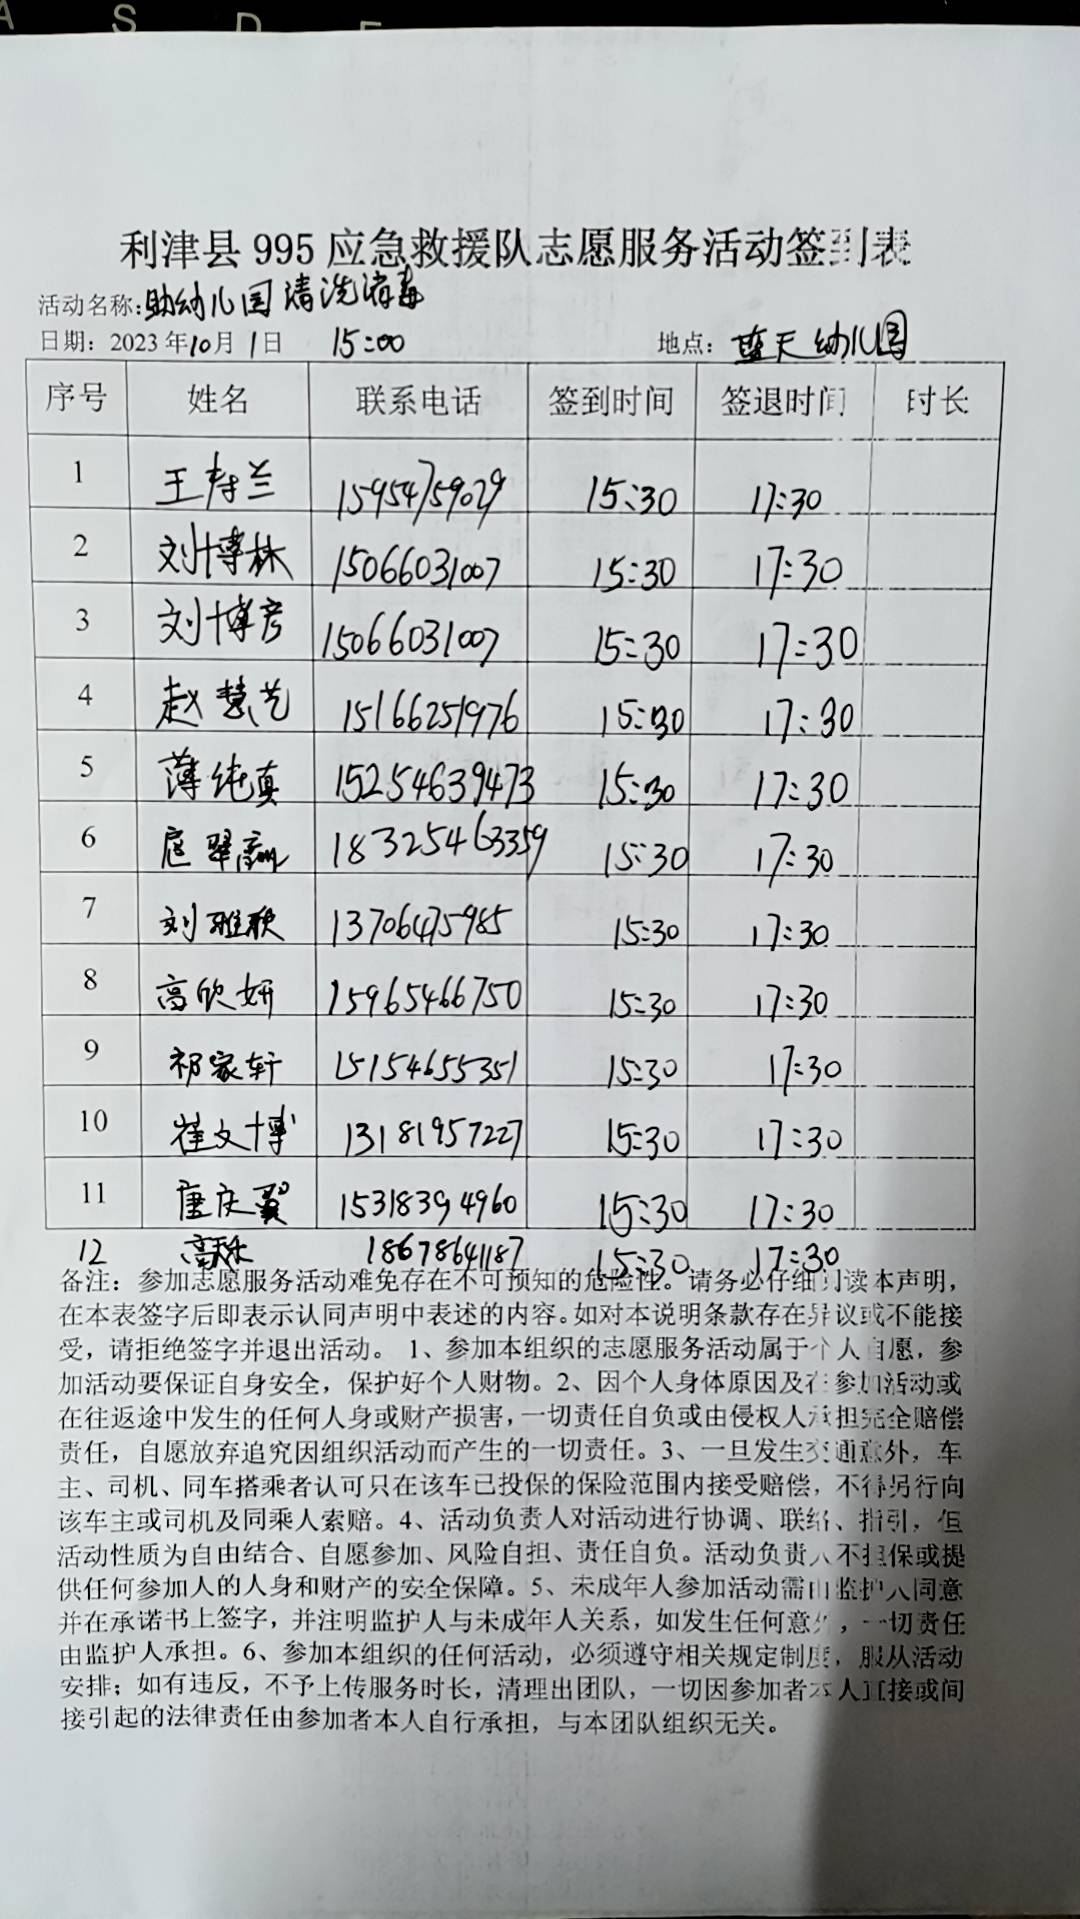 A S D F
利津县995应急救援队志愿服务活动签到表
活动名称:助幼儿园清洗消毒
日期：2023年10月1日 15:00 地点：蓝天幼儿园
序号 姓名 联系电话 签到时间 签退时间 时长
1 王寿兰 15954759029 15:30 17:30
2 刘博林 15066031007 15:30 17:30
3 刘博彦 15066031007 15:30 17:30
4 赵慧艺 15166251976 15:30 17:30
5 薄纯真 15254639473 15:30 17:30
6 翠 18325463359 15:30 17:30
7 刘雅欣 13706475985 15:30 17:30
8 高欣妍 15965466750 15:30 17:30
9 祁家轩 15154655351 15:30 17:30
10 崔文博 13181957227 15:30 17:30
11 唐庆翼 15318394960 15:30 17:30
12 高 18678641187 15:30 17:30
备注：参加志愿服务活动难免存在不可预知的危险性。请务必仔细阅读本声明，
在本表签字后即表示认同声明中表述的内容。如对本说明条款存在异议或不能接
受，请拒绝签字并退出活动。 1、参加本组织的志愿服务活动属于个人自愿，参
加活动要保证自身安全，保护好个人财物。2、因个人身体原因及在参加活动或
在往返途中发生的任何人身或财产损害，一切责任自负或由侵权人承担完全赔偿
责任，自愿放弃追究因组织活动而产生的一切责任。3、一旦发生交通意外，车
主、司机、同车搭乘者认可只在该车已投保的保险范围内接受赔偿，不得另行向
该车主或司机及同乘人索赔。4、活动负责人对活动进行协调、联络、指引，但
活动性质为自由结合、自愿参加、风险自担、责任自负。活动负责人不担保或提
供任何参加人的人身和财产的安全保障。5、未成年人参加活动需由监护人同意
并在承诺书上签字，并注明监护人与未成年人关系，如发生任何意外，一切责任
由监护人承担。6、参加本组织的任何活动，必须遵守相关规定制度，服从活动
安排；如有违反，不予上传服务时长，清理出团队，一切因参加者本人直接或间
接引起的法律责任由参加者本人自行承担，与本团队组织无关。